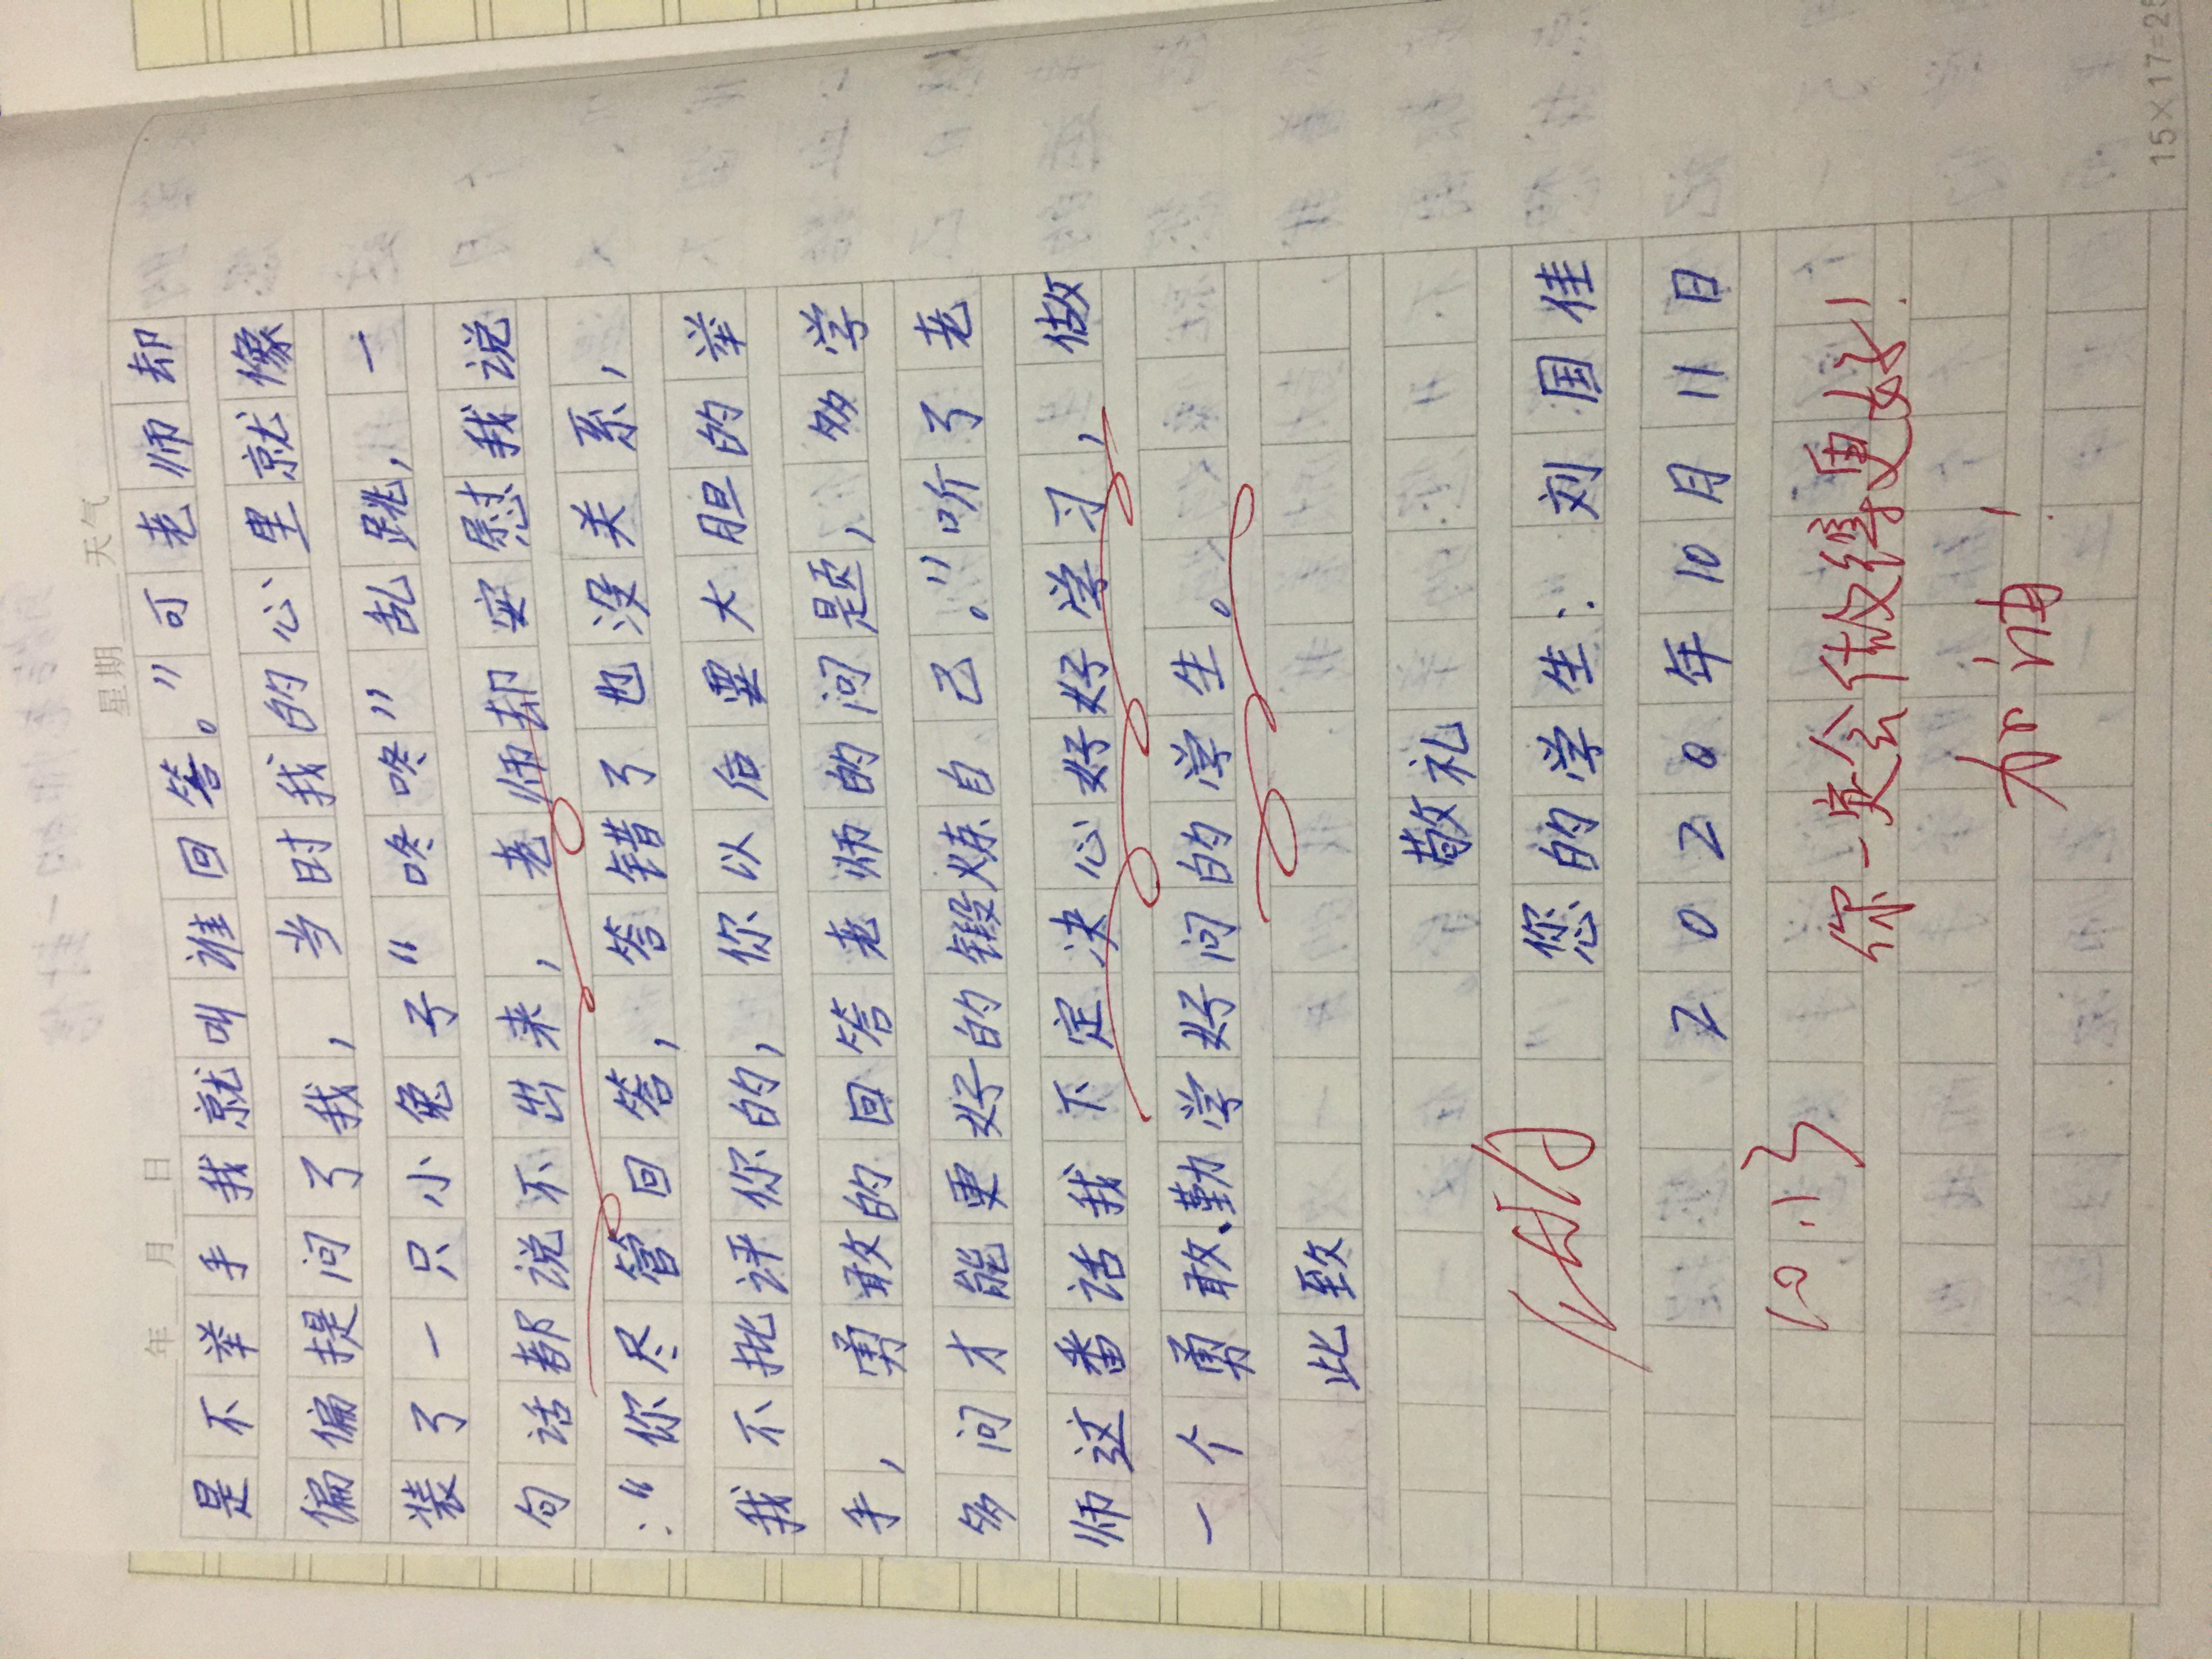 年 月 日 星期 天气
是不举手我就叫谁回答。”可老师却
偏偏提问了我，当时我的心里就像
装了一只小兔子“咚咚”乱跳，一
句话都说不出来，老师却安慰我说
：“你尽管回答，答错了也没关系，
我不批评你的，你以后要大胆的举
手，勇敢的回答老师的问题，多学
多问才能更好的锻炼自己。”听了老
师这番话我下定决心好好学习，做
一个勇敢、勤学好问的学生。
此致
敬礼
您的学生：刘国佳
2020年10月11日
10.13
你一定会做得更好！
加油！
15×17=25